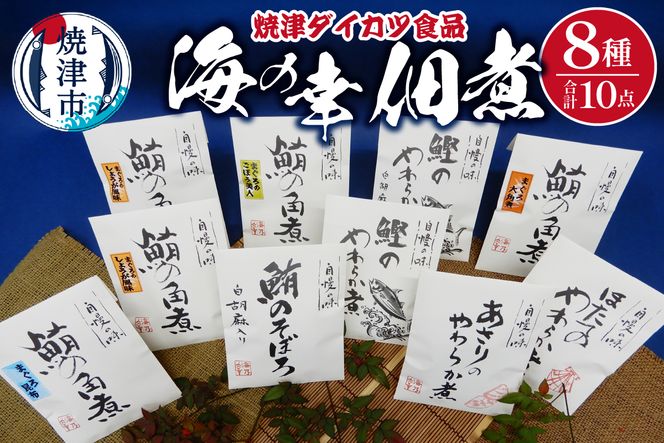 焼津市
焼津ダイカツ食品
海の幸佃煮
8種
合計10点
自慢の味
鮪の角煮
まぐろの
しょうが風味
自慢の味
鮪の角煮
まぐろの
ごぼう美人
自慢の味
鰹の
やわらか煮
白胡麻
自慢の味
鮪の角煮
まぐろ
大角煮
自慢の味
鮪の角煮
まぐろの
しょうが風味
自慢の味
鮪のそぼろ
白胡麻入り
自慢の味
鰹の
やわらか煮
自慢の味
ほたての
やわらか
自慢の味
鮪の角煮
まぐろ昆布
自慢の味
あさりの
やわらか煮